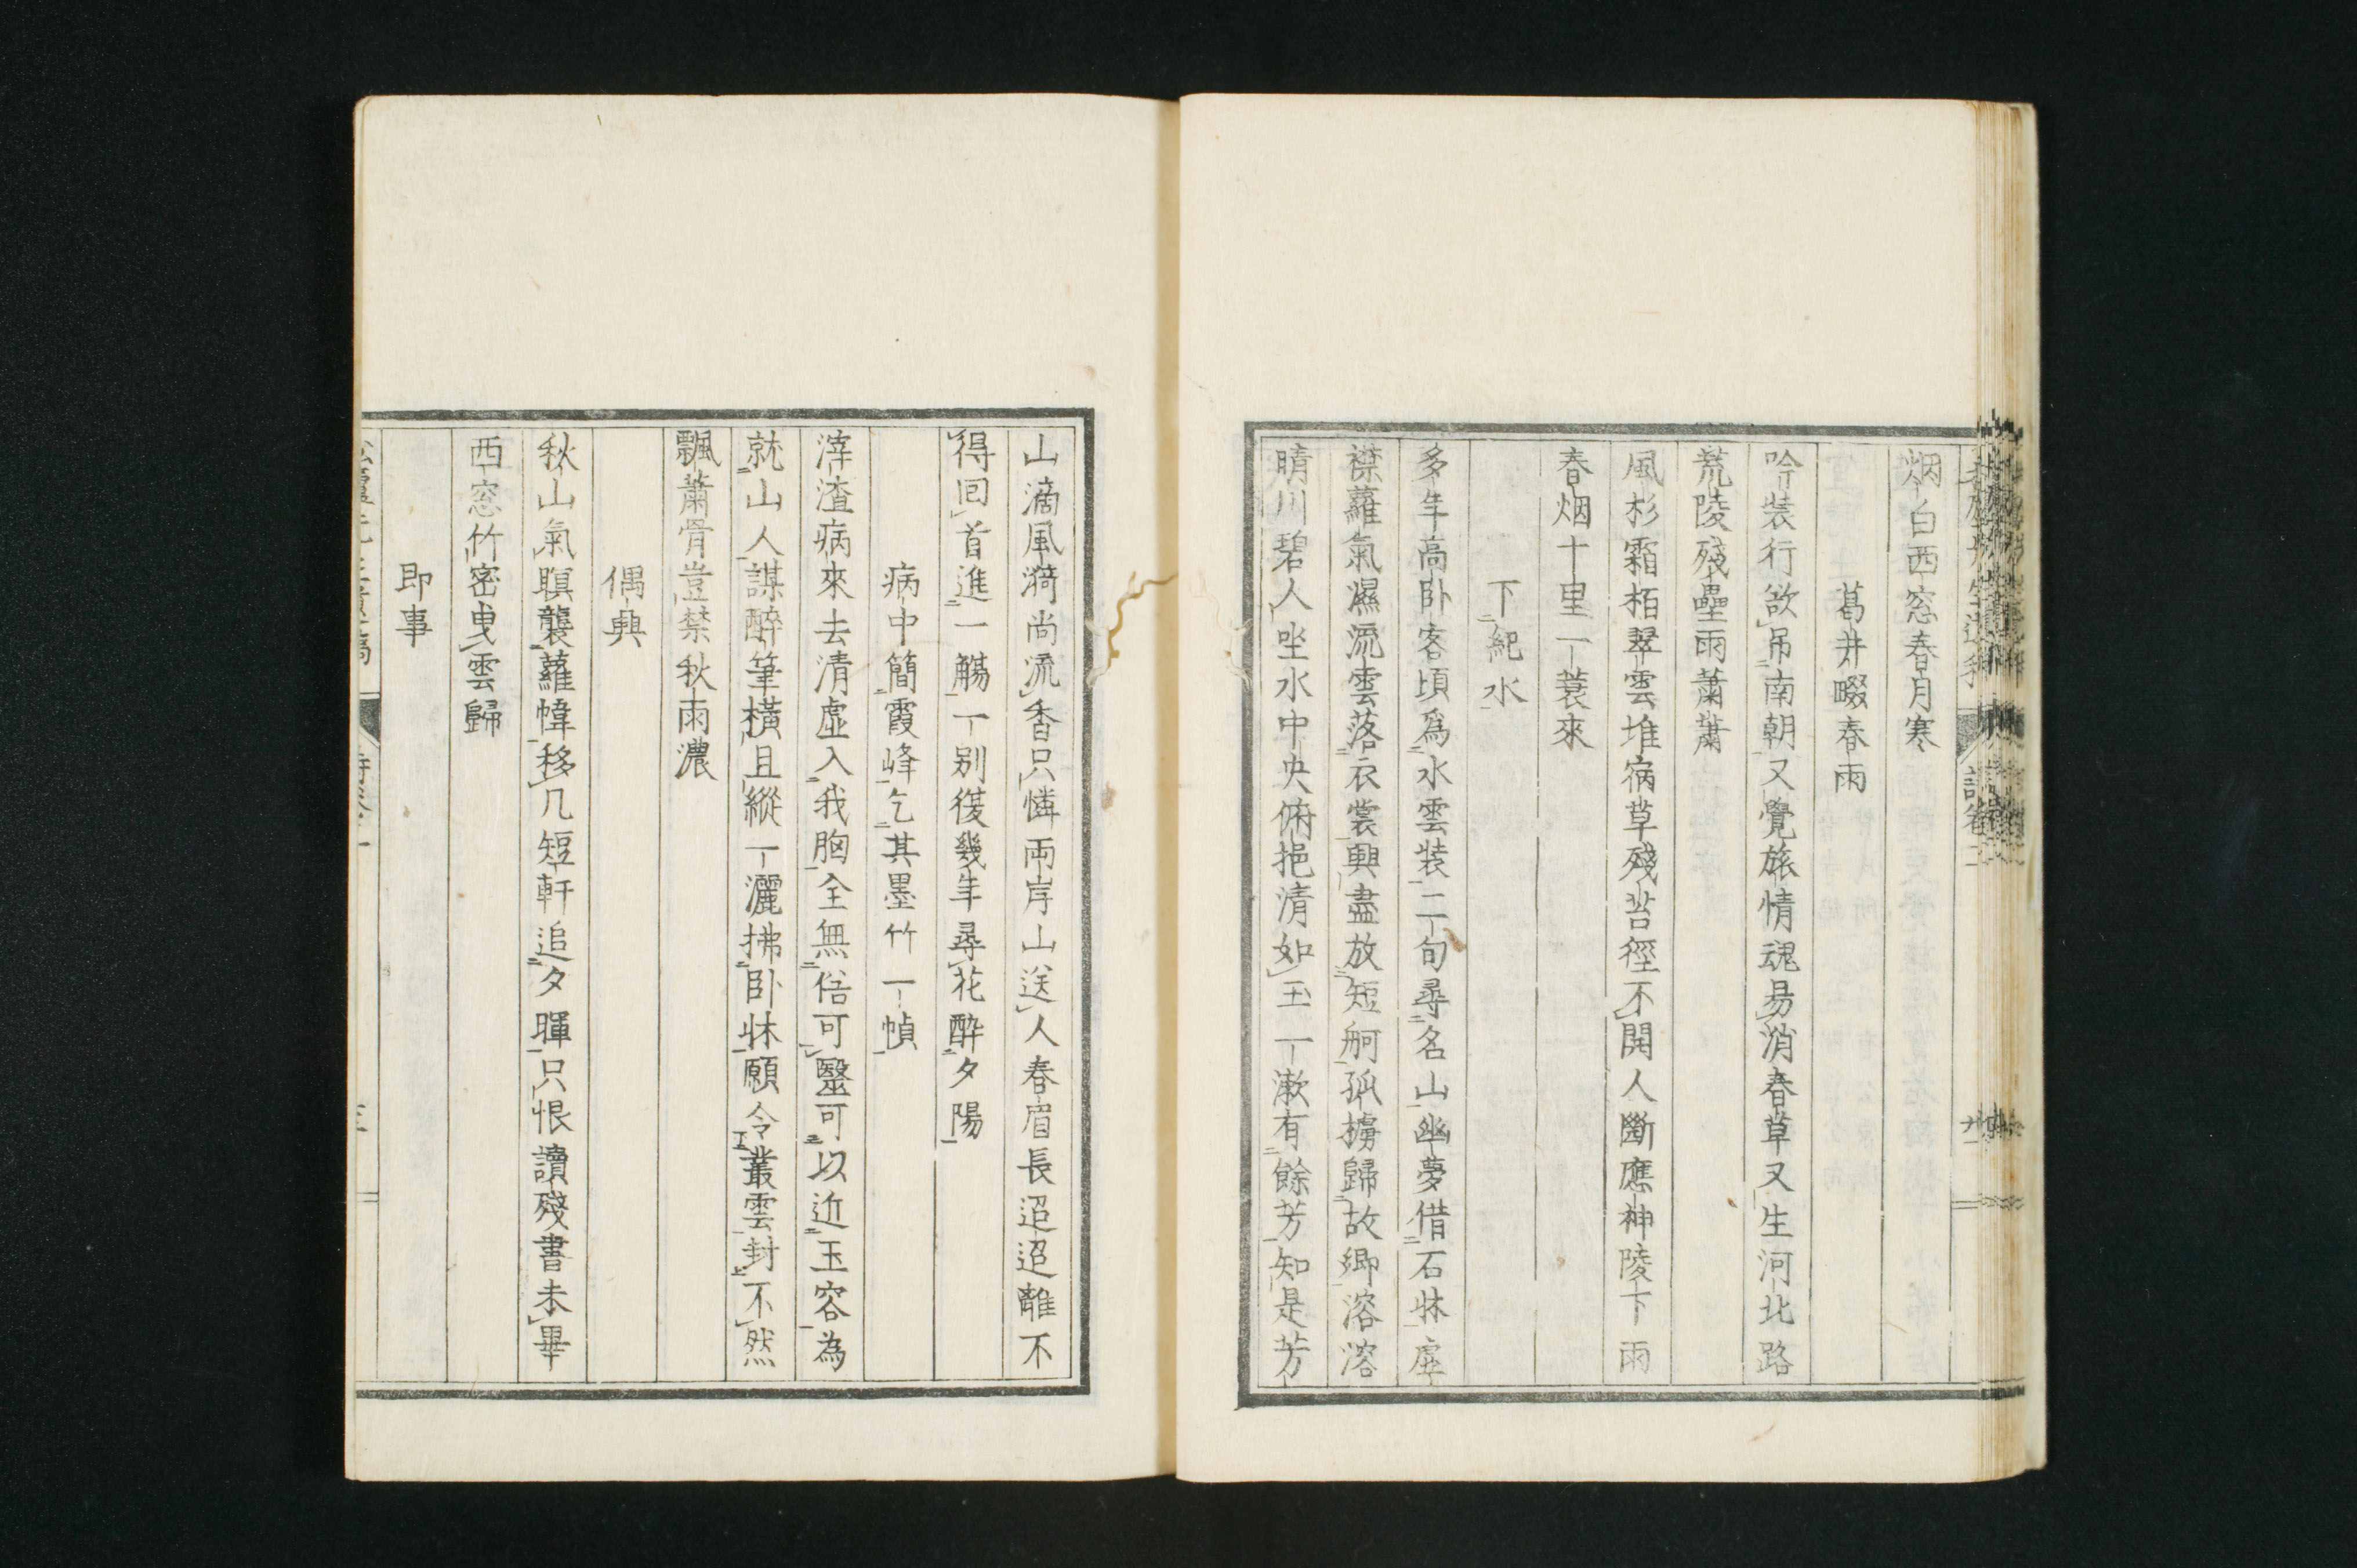 烟白西窓春月寒
葛井畷春雨
吟装行欲吊南朝又覺旅情魂易消春草又生河北路
荒陵殘壘雨蕭蕭
風杉霜栢翠雲堆病草殘苔徑不開人斷應神陵下雨
春烟十里一蓑來
下紀水
多年高卧客頃爲水雲装二旬尋名山幽夢借石牀虛
襟蘿氣濕流雲落衣裳興盡放短舸孤搒歸故鄉溶溶
晴川碧人坐水中央俯挹清如玉一漱有餘芳知是芳
山滴風漪尚流香只憐両岸山送人春眉長迢迢離不
得回首進一觴一别復幾年尋花醉夕陽
病中簡霞峰乞其墨竹一幀
滓渣病來去清虛入我胸全無俗可醫可以近玉容為
就山人謀醉筆橫且縱一灑拂卧牀願令叢雲封不然
飄蕭骨豈禁秋雨濃
偶興
秋山氣瞑襲蘿幃移几短軒追夕暉只恨讀殘書未畢
西窓竹密曳雲歸
即事